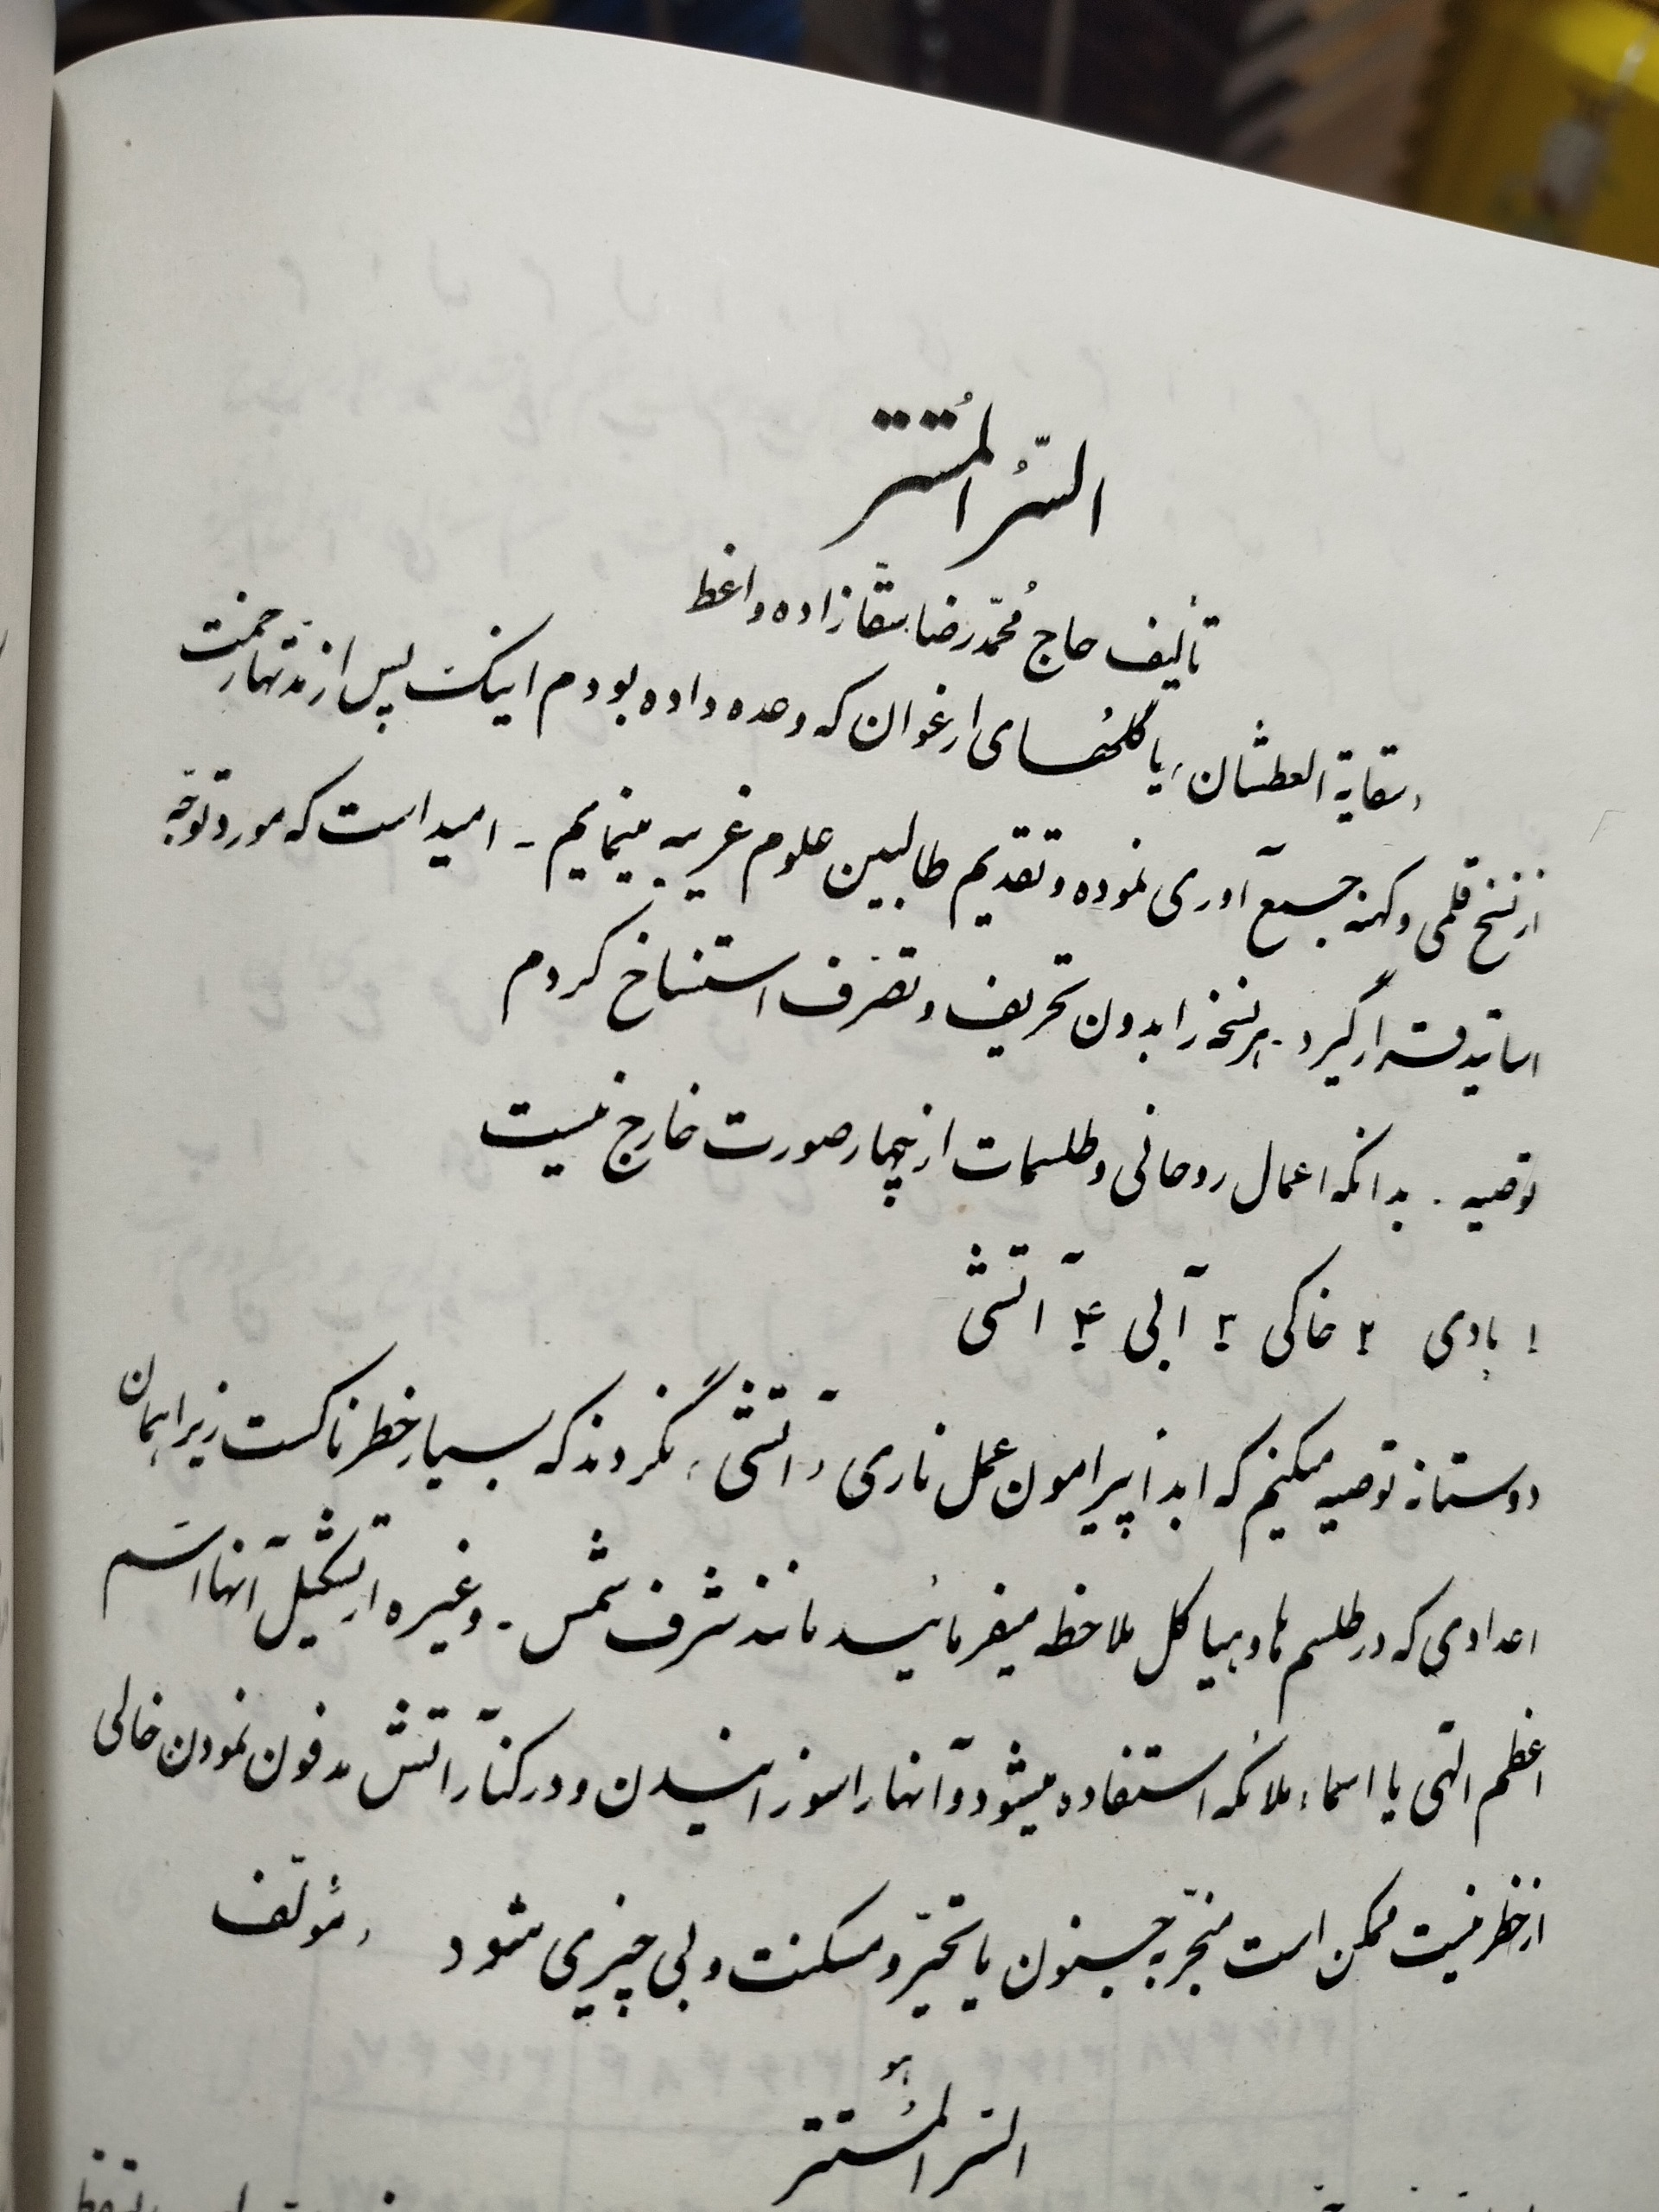 السّرُ المُستتر
تألیف حاج مُحمّدرضا سقازاده واعظ
«سقایة العطشان» یا گلهُای ارغوان که وعده داده بودم اینک پس از مدّتها زحمت
از نسخ قلمی و کهنه جمع آوری نموده و تقدیم طالبین علوم غریبه مینمایم - امید است که مورد توجّه
اساتید قرار گیرد . هر نسخه را بدون تحریف و تصّرف استنساخ کردم
توصیه . بدانکه اعمال روحانی و طلسمات از چهار صورت خارج نیست
۱ بادی ۲ خاکی ۳ آبی ۴ آتشی
دوستانه توصیه میکنم که ابداً پیرامون عمل ناری «آتشی» نگردند که بسیار خطرناکست زیرا همان
اعدادی که در طلسم ها و هیاکل ملاحظه میفرمائید مانند شرف شمس - و غیره از تشکیل آنها اسم
اعظم الهی یا اسماء ملائکه استفاده میشود و آنها را سوزانیدن و در کنار آتش مدفون نمودن خالی
از خطر نیست ممکن است منجّر به جنون یا تحیّر و مسکنت و بی چیزی شود «مؤلف
هو
السّر المُستتر